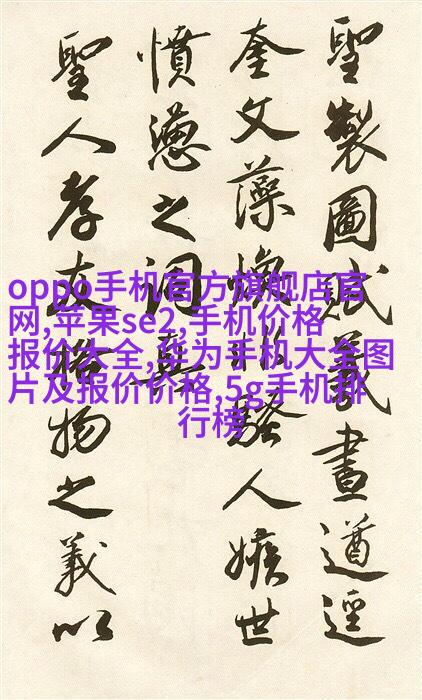 聖製圖賦義畫遒逕
奎文藻煥非騷人嫉世
憤懣之詞
聖人孝友格物之義以
oppo手机官方旗舰店官
网,苹果se2,手机价格
报价大全,华为手机大全图
片及报价价格,5g手机排
行榜